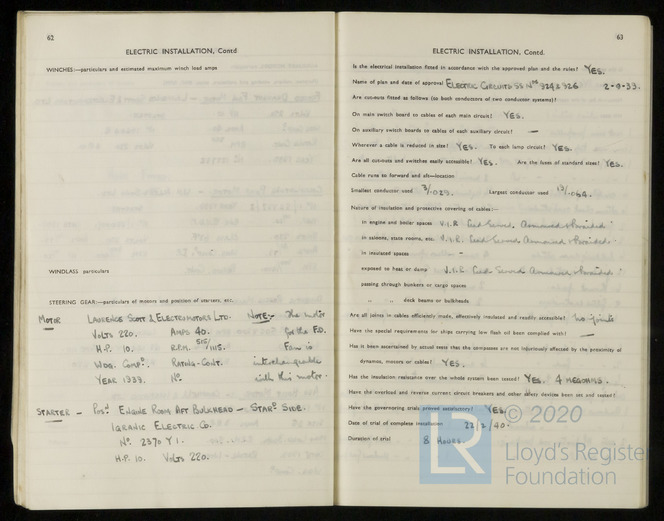 62
ELECTRIC INSTALLATION, Contd
WINCHES:—particulars and estimated maximum winch load amps
WINDLASS particulars
STEERING GEAR:—particulars of motors and position of starters, etc.
MOTOR LAURENCE SCOTT & ELECTROMOTORS LTD. NOTE:- The motor
VOLTS 220. AMPS 40. for the F.D.
H.P. 10. R.P.M. 515/1115. Fan is
WDG. COMPD. RATING-CONT. interchangeable
YEAR 1939. No. with this motor.
STARTER - POSN ENGINE ROOM AFT BULKHEAD - STARD SIDE.
IGRANIC ELECTRIC CO.
No. 2370 Y1.
H.P. 10. VOLTS 220.
63
ELECTRIC INSTALLATION, Contd.
Is the electrical installation fitted in accordance with the approved plan and the rules? YES.
Name of plan and date of approval ELECTRIC CIRCUITS SS Nos 924 & 926 2-9-39.
Are cut-outs fitted as follows (to both conductors of two conductor systems)?
On main switch board to cables of each main circuit? YES.
On auxiliary switch boards to cables of each auxiliary circuit? —
Wherever a cable is reduced in size? YES. To each lamp circuit? YES.
Are all cut-outs and switches easily accessible? YES. Are the fuses of standard sizes? YES.
Cable runs to forward and aft—location
Smallest conductor used 3/.029. Largest conductor used 19/.064.
Nature of insulation and protective covering of cables:—
in engine and boiler spaces V.I.R. Lead Covered Armoured & Braided
in saloons, state rooms, etc. V.I.R. Lead Covered Armoured & Braided.
in insulated spaces -
exposed to heat or damp V.I.R. Lead Covered Armoured & Braided
passing through bunkers or cargo spaces
" " deck beams or bulkheads
Are all joints in cables efficiently made, effectively insulated and readily accessible? No joints
Have the special requirements for ships carrying low flash oil been complied with? —
Has it been ascertained by actual tests that the compasses are not injuriously affected by the proximity of
dynamos, motors or cables? YES.
Has the insulation resistance over the whole system been tested? YES. 4 MEGOHMS.
Have the overload and reverse current circuit breakers and other safety devices been set and tested?
Have the governoring trials proved satisfactory? YES.
Date of trial of complete installation 22/2/40.
Duration of trial 8 HOURS.
LR
© 2020
Lloyd's Register
Foundation